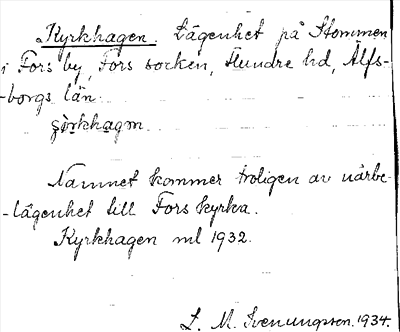 Kyrkhagen. Lägenhet på Stommen
i Fors by, Fors socken, Flundre hd, Älfs-
-borgs län.
çörkhagɷn
Namnet kommer troligen av närbe-
-lägenhet till Fors kyrka.
Kyrkhagen ml 1932.
L. M. Svenungsson. 1934.